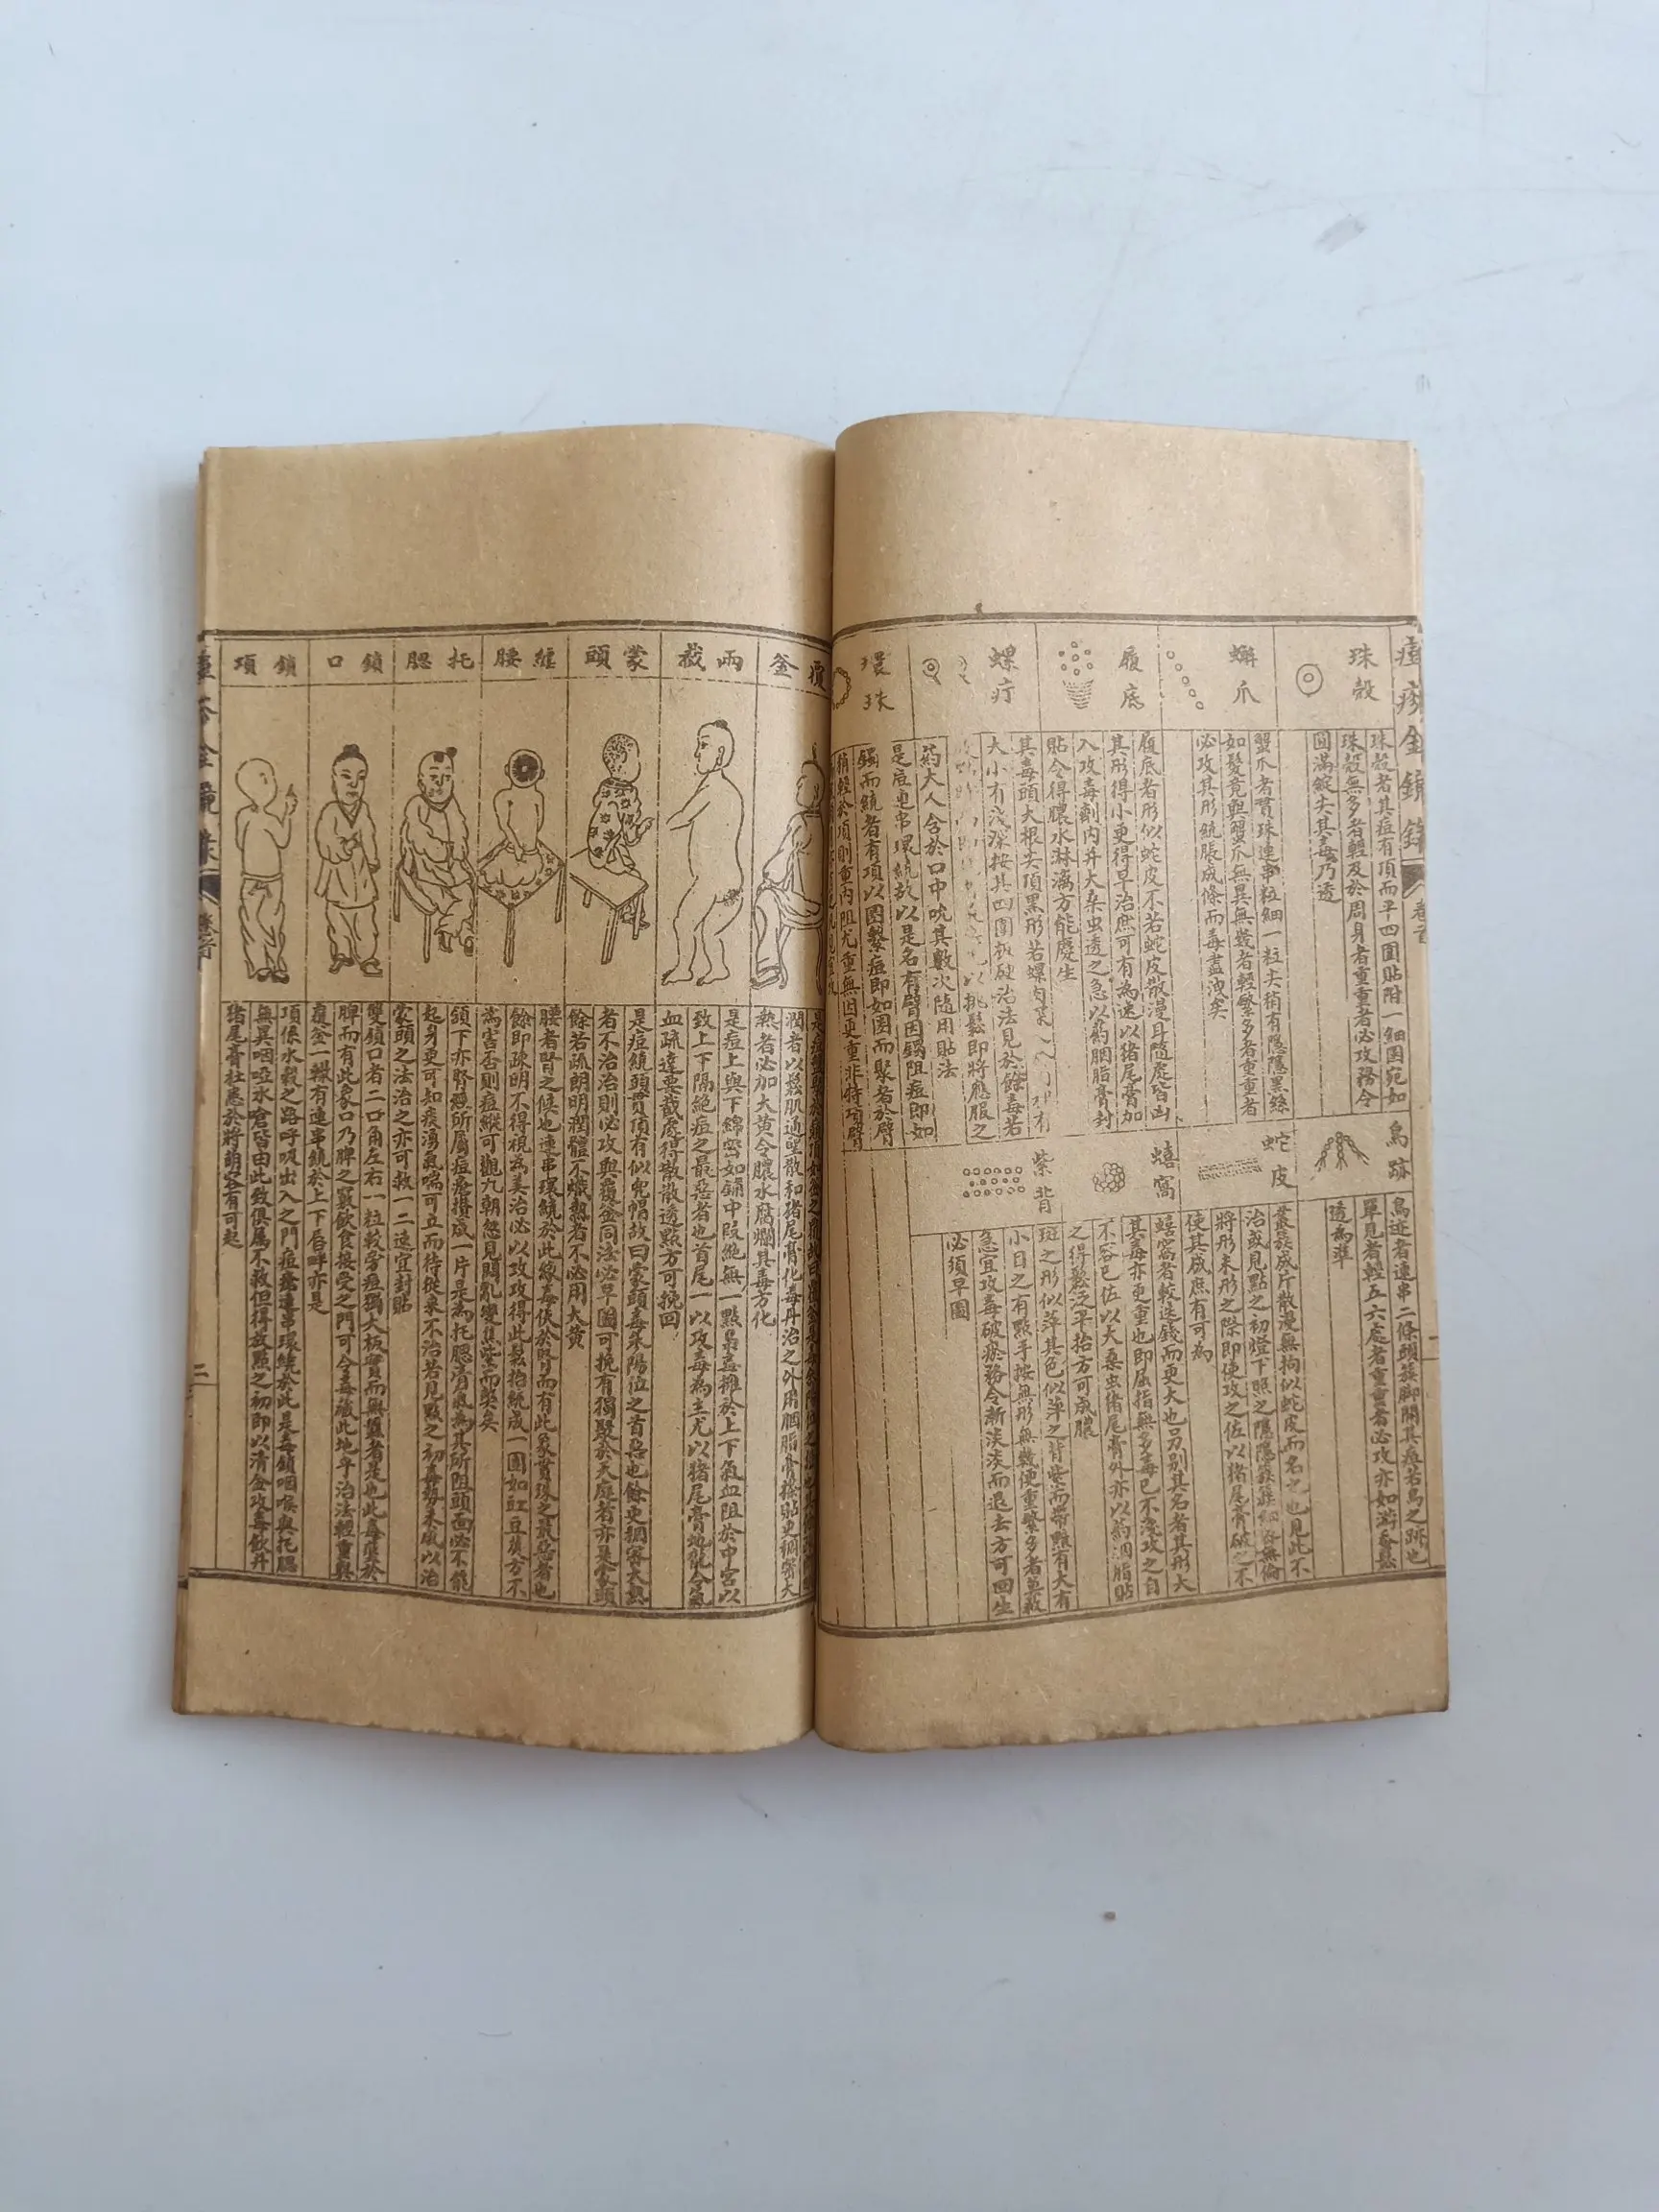 痘疹金鏡錄
卷首
珠殼
珠殼者其痘有頂而平四圍貼附一細圈宛如
珠殼無多者輕及於周身者重重者必攻務令
圓滿綻尖其毒乃透
蠏爪
蟹爪者貫珠連串粒細一粒尖稍有隱隱黑絲
如髮竟與蟹爪無異無幾者輕繁多者重重者
必攻其形統脹成條而毒盡洩矣
履底
履底者形似蛇皮不若蛇皮散漫耳隨處皆凶
其形得小更得早治庶可有為速以猪尾膏加
入攻毒劑內并大桑虫透之急以葯胭脂膏封
貼令得膿水淋漓方能慶生
螺疔
其毒頭大根尖頂黑形若螺
大小有淺深按其四圍板硬治法見於餘毒若
挑鬆即將應服之
葯大人含於口中吮其數次隨用貼法
環珠
是痘連串環繞故以是名有臂因鐲阻痘即如
鐲而繞者有項以圈繫痘即如圈而聚者於臂
稍輕於項則重內阻尤重無因更重非特項臂
鳥跡
鳥迹者連串二條頭簇脚開其痘若鳥之跡也
單見者輕五六處者重重者必攻亦如游蚕鬆
透為準
蛇皮
叢簇成片散漫無拘似蛇皮而名之也見此不
治或見點之初燈下照之隱隱簇簇細密無倫
將形未形之際即使攻之佐以猪尾膏破之不
使其成庶有可為
蟢窩
蟢窩者較迭錢而更大也另別其名者其形大
其毒亦更重也即屈指無多毒已不淺攻之自
不容已佐以大桑虫猪尾膏外亦以葯胭脂貼
之得鬆泛平抬方可成膿
紫背
斑之形似萍其色似萍之背紫而帶黯有大有
小目之有點手按無形無數便重繁多者莫救
急宜攻毒破瘀務令漸淡淡而退去方可回生
必須早圖
覆釜
潤者以鬆肌通聖散和猪尾膏化毒丹治之外用胭脂膏搽貼更稠密大
熱者必加大黃令膿水腐爛其毒方化
兩截
是痘上與下錦密如鋪中段絕無一點梟毒摧於上下氣血阻於中宮以
致上下隔絕痘之最惡者也首尾一以攻毒為主尤以猪尾膏地龍令氣
血疏達要截處得散散透點方可挽回
蒙頭
是痘統頭貫頂有似兜帽故曰蒙頭毒萃陽位之首惡也餘更稠密大熱
者不治治則必攻與覆釜同法必早圖可挽有獨聚於天庭者亦是蒙頭
餘若疏朗明潤體不熾熱者不必用大黃
纏腰
腰者腎之候也連串環繞於此緣毒伏於腎而有此象貫珠之最惡者也
餘即疎明不得視為美治必以攻攻得此鬆抬統成一圓如豇豆莢方不
為害否則痘縱可觀九朝忽見頭亂變焦紫而斃矣
托腮
頷下亦腎經所屬痘瘡攢成一片是為托腮清氣為其所阻頭面必不能
起身更可知痰湧氣喘可立而待從來不治若見點之初毒勢未成以治
蒙頭之法治之亦可救一二速宜封貼
鎖口
雙鎖口者二口角左右一粒較旁痘獨大板實而無盤者是也此毒壅於
脾而有此象口乃脾之竅飲食接受之門可令毒藏此地乎治法輕重與
覆釜一轍有連串繞於上下唇畔亦是
鎖項
項係水穀之路呼吸出入之門痘瘡連串環繞於此是毒鎖咽喉與托腮
無異咽啞水嗆皆由此致俱屬不救但得放點之初即以清金攻毒飲并
猪尾膏杜患於將萌容有可起
二